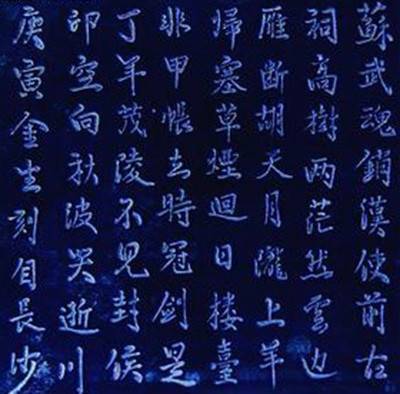 蘇武魂銷漢使前古
祠高樹兩茫然雲边
雁断胡天月隴上羊
歸塞草煙迴日樓臺
非甲帳去時冠劍是
丁年茂陵不見封侯
印空向秋波哭逝川
庚寅金生刻自長沙